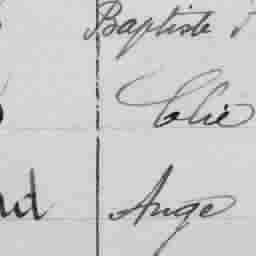 Baptiste
Elie
ut Ange